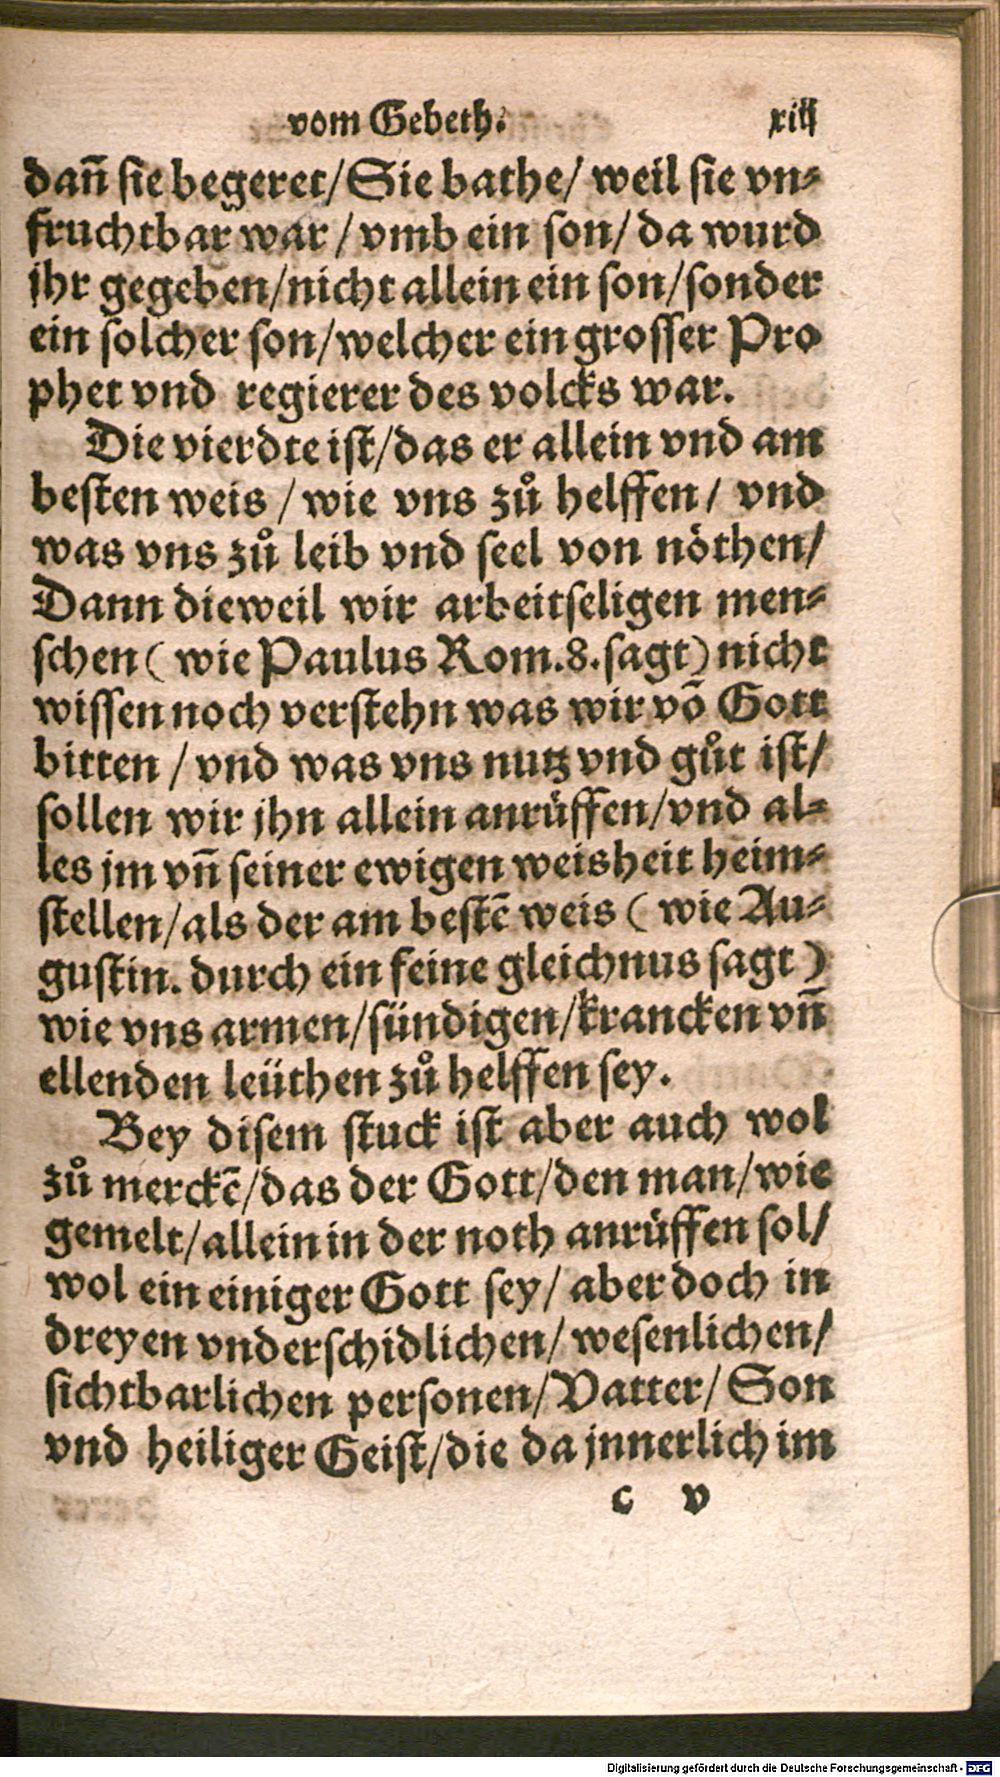 vom Gebeth. xiij
dañ sie begeret/Sie bathe/ weil sie vn⸗
fruchtbar war / vmb ein son/ da wurd
jhr gegeben/nicht allein ein son/sonder
ein solcher son/welcher ein grosser Pro
phet vnd regierer des volcks war.
Die vierdte ist/das er allein vnd am
besten weis / wie vns zů helffen/ vnd
was vns zů leib vnd seel von nöthen/
Dann dieweil wir arbeitseligen men⸗
schen ( wie Paulus Rom.8.sagt) nicht
wissen noch verstehn was wir võ Gott
bitten / vnd was vns nutz vnd gůt ist/
sollen wir jhn allein anrüffen/vnd al⸗
les jm vñ seiner ewigen weisheit heim⸗
stellen/als der am bestẽ weis ( wie Au⸗
gustin. durch ein feine gleichnus sagt )
wie vns armen/sündigen/krancken vñ
ellenden leüthen zů helffen sey.
Bey disem stuck ist aber auch wol
zů merckẽ/das der Gott/den man/wie
gemelt/allein in der noth anrüffen sol/
wol ein einiger Gott sey/ aber doch in
dreyen vnderschidlichen/ wesenlichen/
sichtbarlichen personen/Vatter/ Son
vnd heiliger Geist/die da jnnerlich im
c v
Digitalisierung gefördert durch die Deutsche Forschungsgemeinschaft - DFG